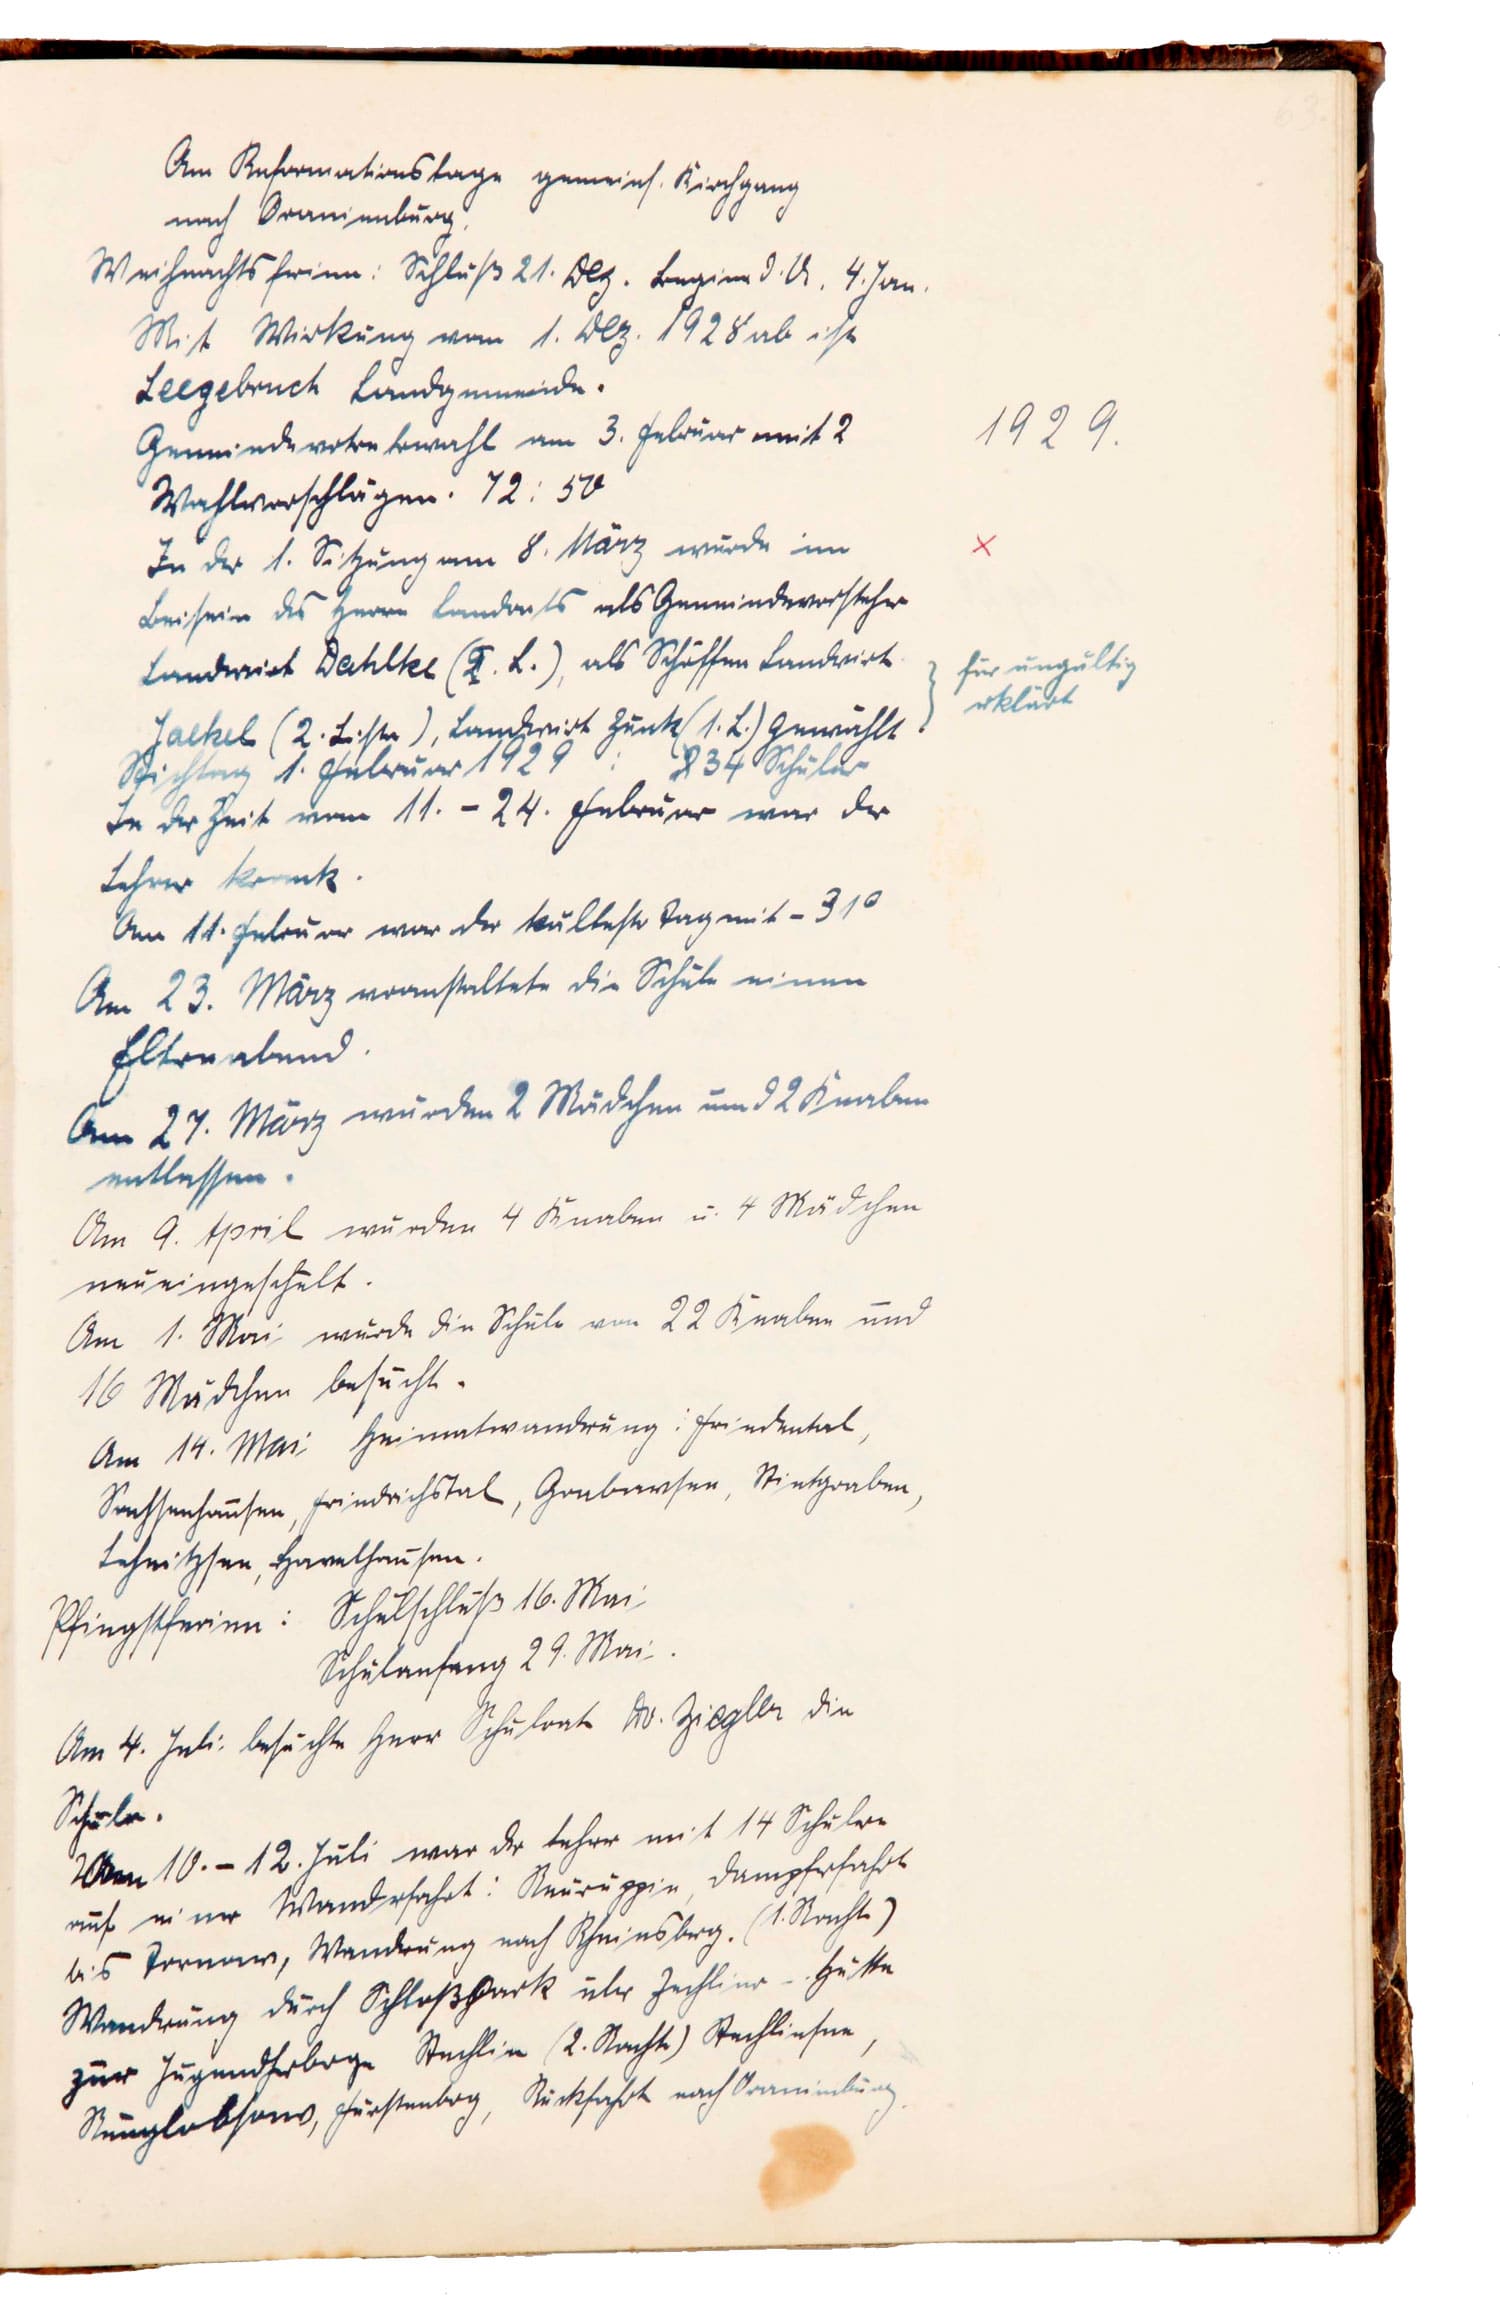 63.
Am Reformationstage gemeins. Kirchgang
nach Oranienburg.
Weihnachtsferien: Schluß 21. Dez. Beginn d. U. 4. Jan.
Mit Wirkung vom 1. Dez. 1928 ab ist
Leegebruch Landgemeinde.
Gemeindevertreterwahl am 3. Februar mit 2
1929.
Wahlvorschlägen. 72 : 50
In der 1. Sitzung am 8. März wurde im
×
Beisein des Herrn Landrats als Gemeindevorsteher
Landwirt Dahlke (2. L.), als Schöffen Landwirt
für ungültig
erklärt
Jaekel (2. Liste), Landwirt Zunk (1. L.) gewählt
Stichtag 1. Februar 1929 : 34 Schüler
In der Zeit vom 11. – 24. Februar war der
Lehrer krank.
Am 11. Februar war der kälteste Tag mit – 31°
Am 23. März veranstaltete die Schule einen
Elternabend.
Am 27. März wurden 2 Mädchen und 2 Knaben
entlassen.
Am 9. April wurden 4 Knaben u. 4 Mädchen
neu eingeschult.
Am 1. Mai wurde die Schule von 22 Knaben und
16 Mädchen besucht.
Am 14. Mai Heimatwanderung: Friedental,
Sachsenhausen, Friedrichstal, Grabowsee, Stintgraben,
Lehnitzsee, Havelhausen.
Pfingstferien: Schulschluß 16. Mai
Schulanfang 29. Mai.
Am 4. Juli besuchte Herr Schulrat Dr. Ziegler die
Schule.
Vom 10. – 12. Juli war der Lehrer mit 14 Schülern
auf einer Wanderfahrt: Neuruppin, Dampferfahrt
bis Tornow, Wanderung nach Rheinsberg. (1. Nacht)
Wanderung durch Schloßpark über Zechliner – Hütte
zur Jugendherberge Stechlin (2. Nacht) Stechlinsee,
Neuglobsow, Fürstenberg, Rückfahrt nach Oranienburg.